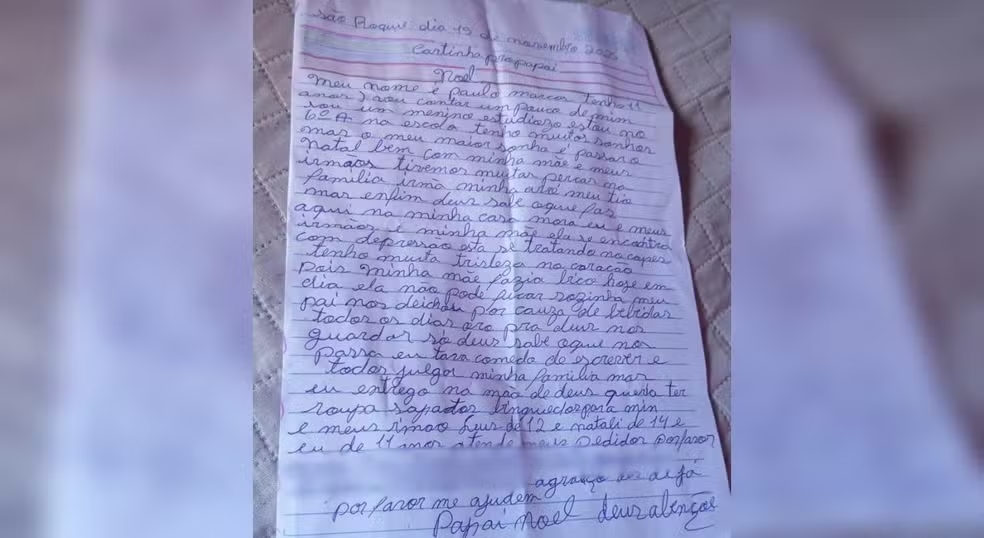 são Roque dia 19 de novembro 202
Cartinha pro papai
Noel
Meu nome é paulo marcos tenho 11
anos) vou contar um pouco de mim
sou um menino estudiozo estou no
6º A na escola tenho muitos sonhos
mas o meu maior sonho é passar o
natal bem com minha mãe e meus
irmãos tivemos muitas percas na
familia irmã minha avó meu tio
mas enfim deus sabe oque faz
aqui na minha casa mora eu e meus
irmãos e minha mãe ela se encontra
com depressão esta se tratando no capes
tenho muita tristeza no coração
pois minha mãe fazia bico hoje em
dia ela não pode ficar sozinha meu
pai nos deichou por cauza de bebidas
todos os dias oro pra deus nos
guardar só deus sabe oque nos
passa eu tava comedo de escrever e
todos julgor minha familia mas
eu entrego na mão de deus queria ter
roupa sapatos binquedos para min
e meus irmão de 12 e natali de 14 e
eu de 11 anos atende meus pedidos porfavor
agraço
porfavor me ajudem
Papai Noel deus abençoe